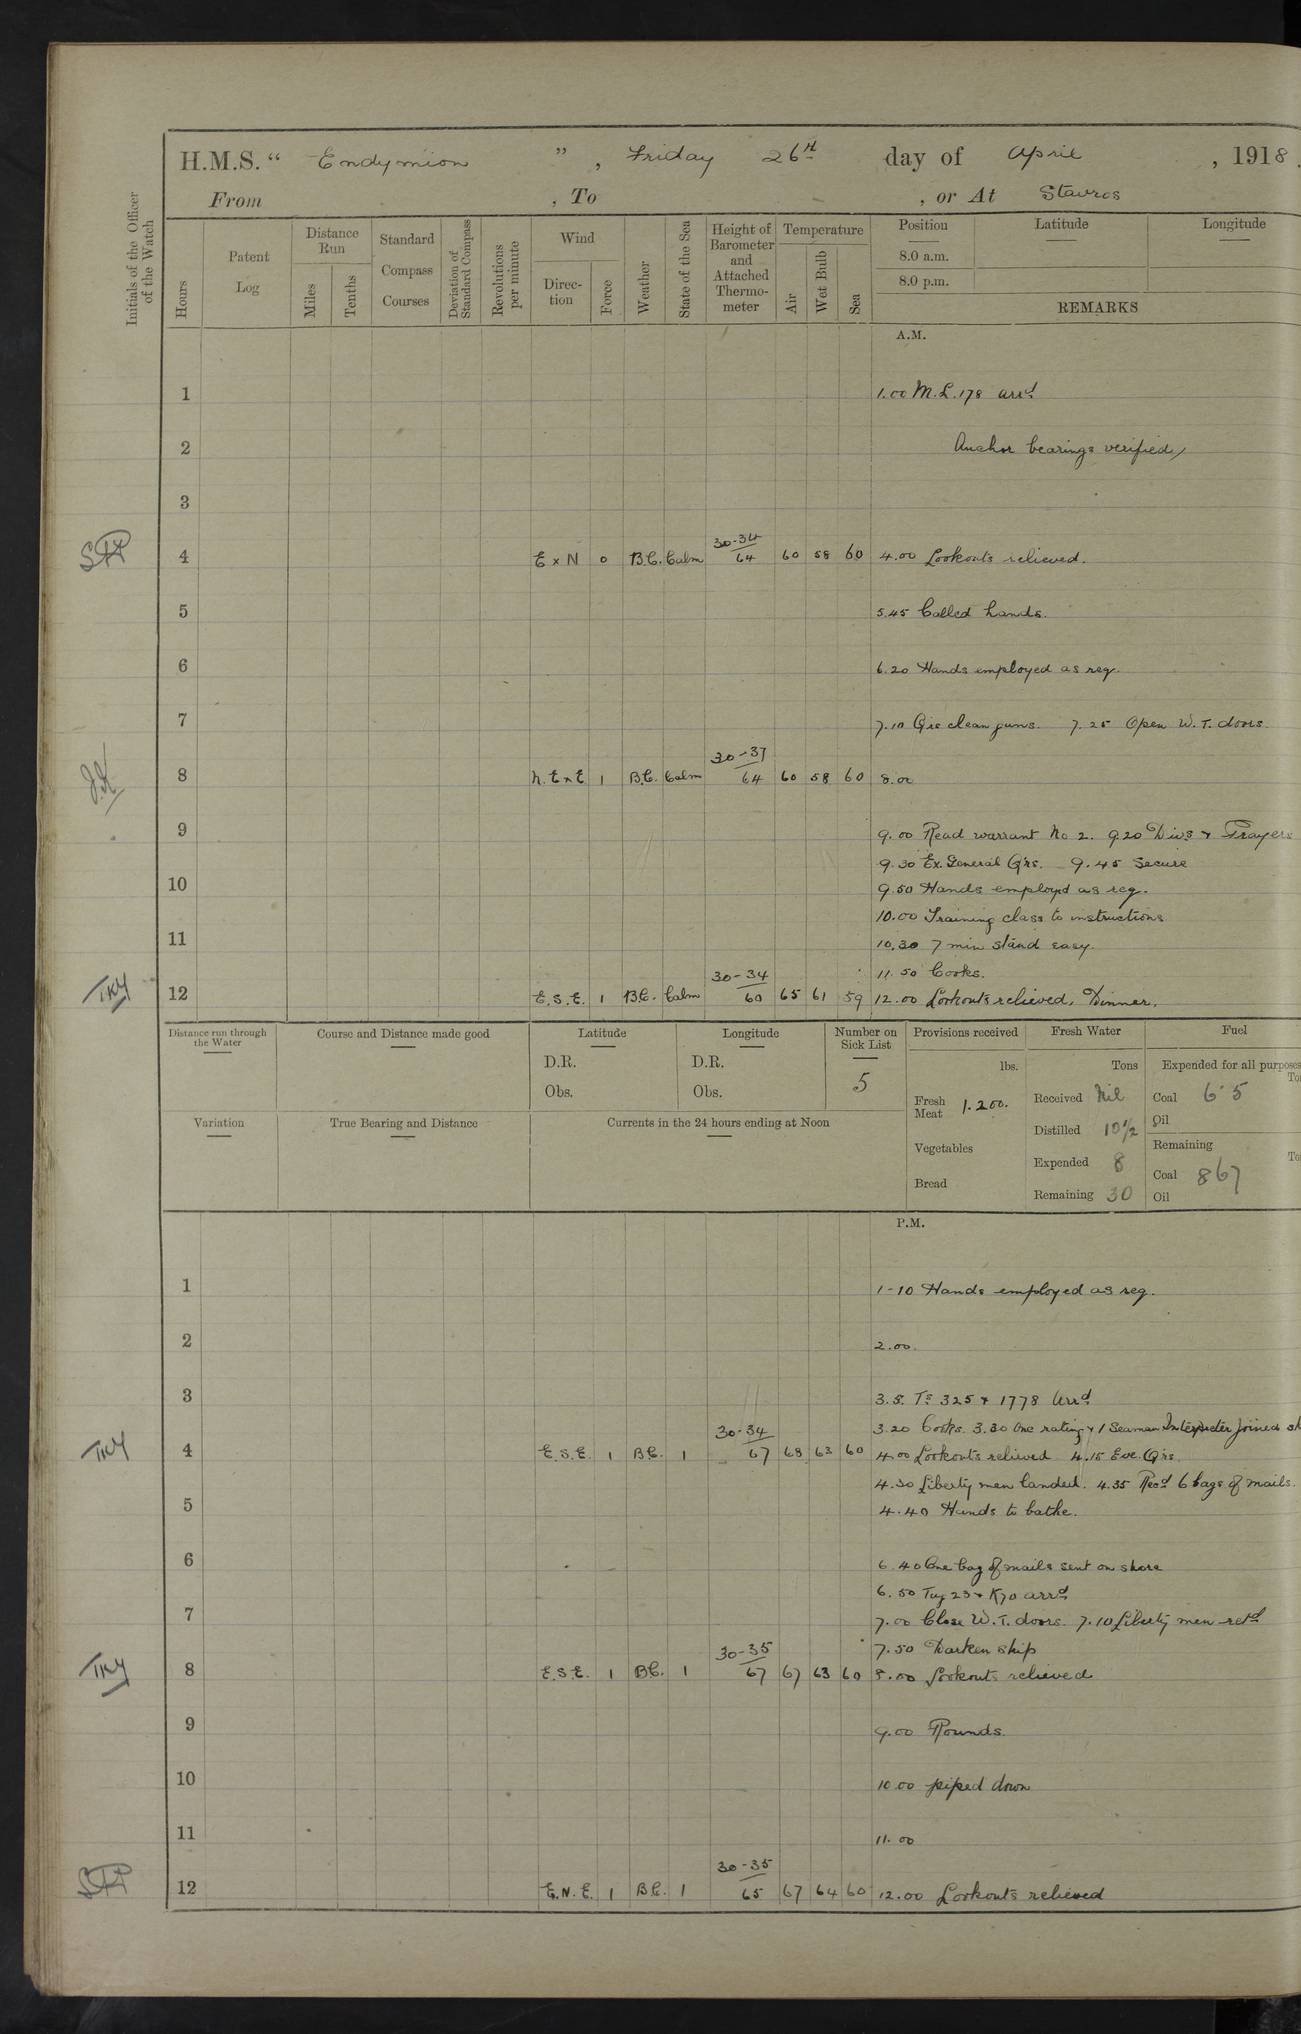 H.M.S. " Endymion ", Friday 26th day of April, 1918.
From , To , or At Stavros
Initials of the Officer of the Watch
Hours
Patent Log
Distance Run
Miles
Tenths
Standard Compass Courses
Deviation of Standard Compass
Revolutions per minute
Wind
Direction
Force
Weather
State of the Sea
Height of Barometer and Attached Thermometer
Temperature
Air
Wet Bulb
Sea
Position
8.0 a.m.
8.0 p.m.
Latitude
Longitude
REMARKS
A.M.
1 1.00 M.L.178 arrd
2 Anchor bearings verified
3
30-34
4 E x N 0 B.C. Calm 64 60 58 60 4.00 Lookouts relieved.
5 5.45 Called hands.
6 6.20 Hands employed as req.
7 7.10 Qrs clean guns. 7.25 Open W.T. doors
30-37
J.K. 8 N.E x E 1 B.C. Calm 64 60 58 60 8.00
9 9.00 Read warrant No 2. 9.20 Divs & Prayers
9.30 Ex. General Qrs. 9.45 Secure
10 9.50 Hands employd as req.
10.00 Training class to instructions
11 10.30 7 min stand easy.
30-34 11.50 Cooks.
TKY 12 E.S.E. 1 B.C. Calm 60 65 61 59 12.00 Lookouts relieved, Dinner.
Distance run through the Water
Course and Distance made good
Latitude
D.R.
Obs.
Longitude
D.R.
Obs.
Number on Sick List
5
Provisions received
lbs.
Fresh Meat 1.200.
Vegetables
Bread
Fresh Water
Tons
Received Nil
Distilled 10½
Expended 8
Remaining 30
Fuel
Expended for all purposes
To
Coal 6.5
Oil
Remaining
To
Coal 867
Oil
Variation
True Bearing and Distance
Currents in the 24 hours ending at Noon
P.M.
1 1-10 Hands employed as req.
2 2.00
3 3.5. Ts 325 & 1778 Arrd
30-34 3.20 Cooks. 3.30 One rating & 1 Seaman Interpreter joined
TKY 4 E.S.E. 1 B.C. 1 67 68 63 60 4.00 Lookouts relieved 4.15 Eve. Qrs.
4.30 Liberty men landed. 4.35 Recd 6 bags of mails.
5 4.40 Hands to bathe.
6 6.40 One bag of mails sent on shore
6.50 Tug 23 & K70 arrd
7 7.00 Close W.T. doors. 7.10 Liberty men retd
30-35 7.50 Darken ship
TKY 8 E.S.E. 1 B.C. 1 67 67 63 60 8.00 Lookouts relieved
9 9.00 Rounds.
10 10.00 piped down
11 11.00
30-35
12 E.N.E. 1 B.C. 1 65 67 64 60 12.00 Lookouts relieved